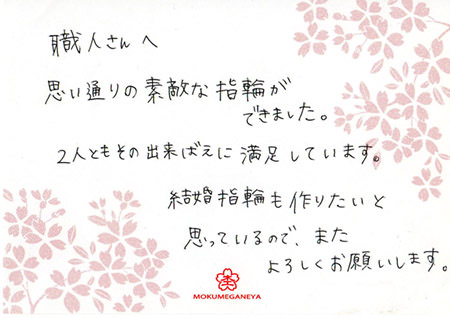 職人さんへ
思い通りの素敵な指輪が
できました。
2人ともその出来ばえに満足しています。
結婚指輪も作りたいと
思っているので、また
よろしくお願いします。
MOKUMEGANEYA